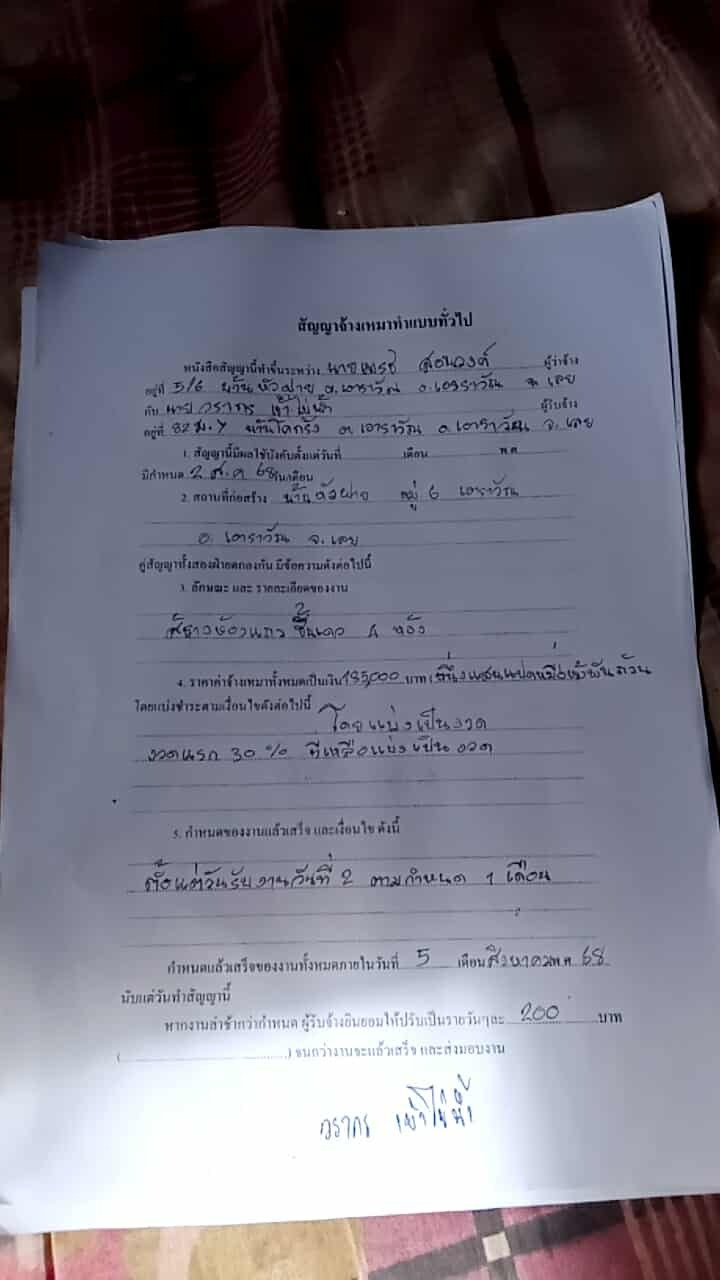 สัญญาจ้างเหมาทำแบบทั่วไป
หนังสือสัญญานี้ทำขึ้นระหว่าง นาย สอนวงค์ ผู้ว่าจ้าง
อยู่ที่ 5/6 ต.เอราวัณ อ.เอราวัณ จ.เลย
กับ นาย วรากร ผู้รับจ้าง
อยู่ที่ 82 ม.7 บ้านโคกรัง ต.เอราวัณ อ.เอราวัณ จ.เลย
1. สัญญานี้มีผลใช้บังคับตั้งแต่วันที่ เดือน พ.ศ
มีกำหนด 2 ส.ค 68 วัน/เดือน
2. สถานที่ก่อสร้าง บ้าน หมู่ 6 เอราวัณ
อ. เอราวัณ จ.เลย
คู่สัญญาทั้งสองฝ่ายตกลงกัน มีข้อความดังต่อไปนี้
3. ลักษณะ และ รายละเอียดของงาน
ห้องแถว 2 ชั้นเดียว 4 ห้อง
4. ราคาค่าจ้างเหมาทั้งหมดเป็นเงิน 185,000 บาท (หนึ่งแสนแปดหมื่นห้าพันถ้วน
โดยแบ่งชำระตามเงื่อนไขดังต่อไปนี้
โดยแบ่งเป็นงวด
งวดแรก 30 % ที่เหลือแบ่งเป็น งวด
5. กำหนดของงานแล้วเสร็จ และเงื่อนไข ดังนี้
ตั้งแต่วันรับงานวันที่ 2 ตามกำหนด 1 เดือน
กำหนดแล้วเสร็จของงานทั้งหมดภายในวันที่ 5 เดือน สิงหาคม พ.ศ. 68
นับแต่วันทำสัญญานี้
หากงานล่าช้ากว่ากำหนด ผู้รับจ้างยินยอมให้ปรับเป็นรายวันๆละ 200 บาท
(....................) จนกว่างานจะแล้วเสร็จ และส่งมอบงาน
วรากร